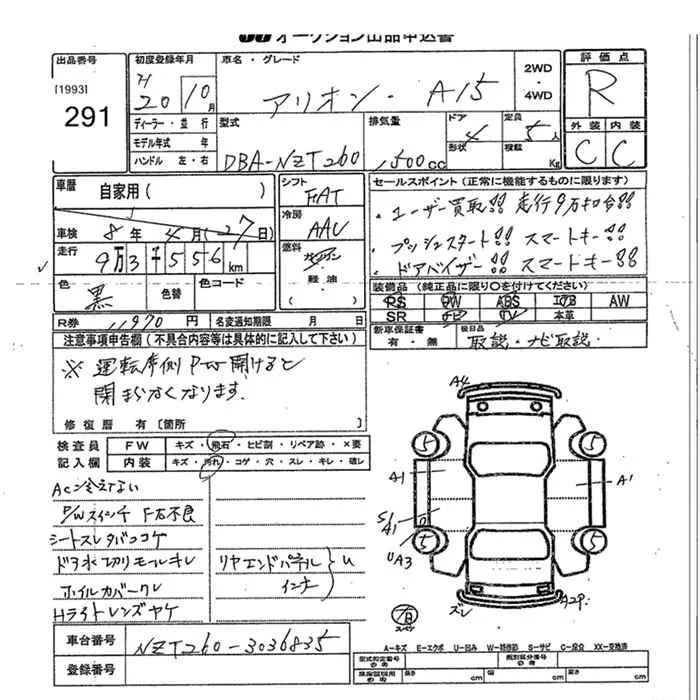 オークション出品申込書
出品番号 初度登録年月 車名・グレード 2WD・4WD 評価点
[1993]
291
H20 10月 アリオン・A15 R
ディーラー・並行 型式 排気量 ドア 定員 外装 内装
モデル年式 年
ハンドル 左・右
DBA-NZT260 1500cc 4 5人 形状 積載 Kg C C
車歴 自家用( ) シフト FAT セールスポイント(正常に機能するものに限ります)
車検 8年 4月(27日) 冷房 AAC
・ユーザー買取!! 走行9万km台!!
・プッシュスタート!! スマートキー!!
・ドアバイザー!! スマートキー!!
走行 9万3千556km 燃料 ガソリン・軽油・( )
色 黒 色替 色コード
装備品(純正品に限り○を付けてください)
PS PW ABS エアB AW
SR ナビ TV 本革
R券 11970円 名変通知期限 月 日
新車保証書 有・無 後日品 取説・ナビ取説・
注意事項申告欄(不具合内容等は具体的に記入して下さい)
※運転席側P-W開けると
閉まらなくなります。
修復歴 有[箇所 ]
検査員 FW キズ・飛石・ヒビ割・リペア跡・×要
記入欄 内装 キズ・汚れ・コゲ・穴・スレ・キレ・破レ
ACン冷えてない
P/Wスイッチ F右不良
シートスレタバココゲ
ドア水切りモールキレ
ホイルカバークレ
Hライトレンズヤケ
リヤエンドパネル U
インナー
A4
5 5
A1 A1
S/A1
5 5
UA3
スペア
ズレ A29
車台番号 NZT260-3036835
登録番号
A-キズ E-エクボ U-凹み W-補修跡 S-サビ C-腐食 XX-交換済
型式指定番号 類別区分番号
長さ cm 幅 cm 高さ cm